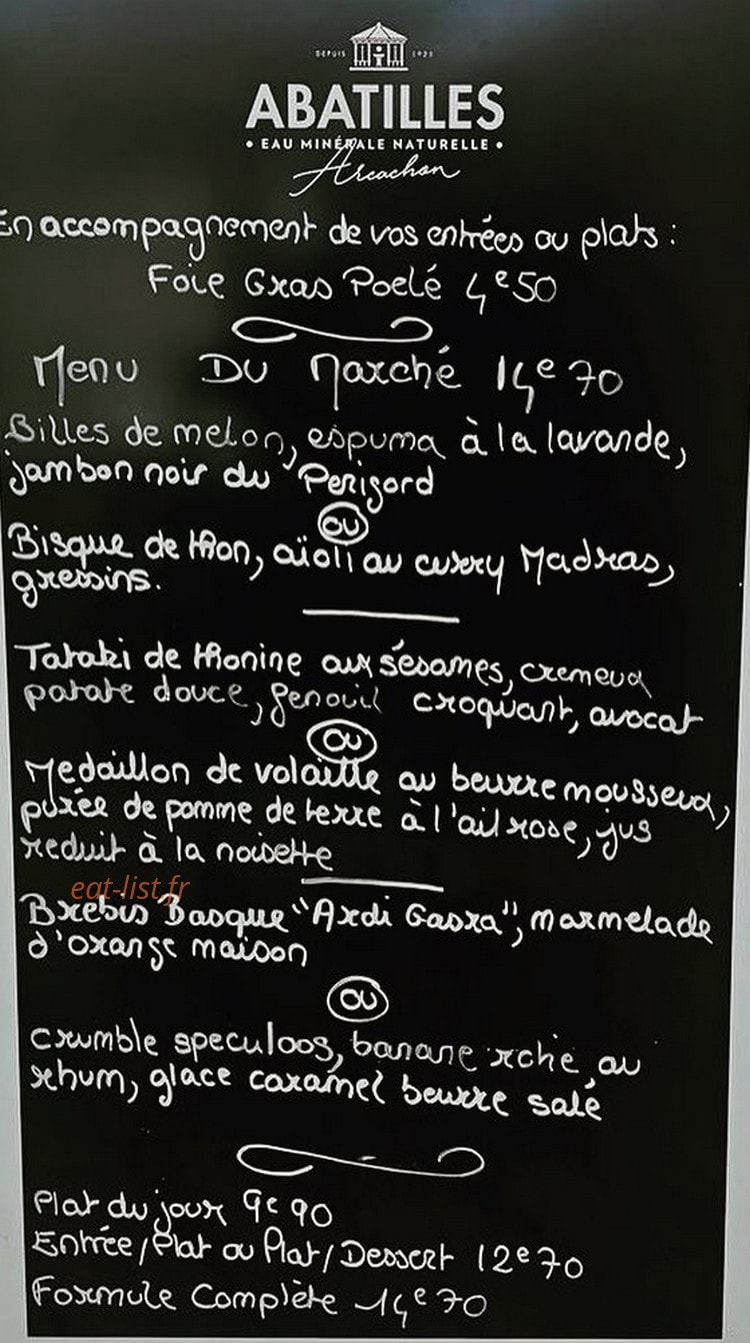 DEPUIS 1923
ABATILLES
• EAU MINÉRALE NATURELLE •
Arcachon
En accompagnement de vos entrées ou plats :
Foie Gras Poelé 4e50
Menu Du Marché 14e70
Billes de melon, espuma à la lavande,
jambon noir du Perigord
ou
Bisque de thon, aïoli au curry Madras,
gressins.
Tataki de thonine aux sésames, cremeux
patate douce, fenouil croquant, avocat
ou
Medaillon de volaille au beurre mousseux,
purée de pomme de terre à l'ail rose, jus
reduit à la noisette
eat-list.fr
Brebis Basque "Ardi Gasna", marmelade
d'orange maison
ou
crumble speculoos, banane au
rhum, glace caramel beurre salé
Plat du jour 9e90
Entrée/Plat ou Plat/Dessert 12e70
Formule Complète 14e70